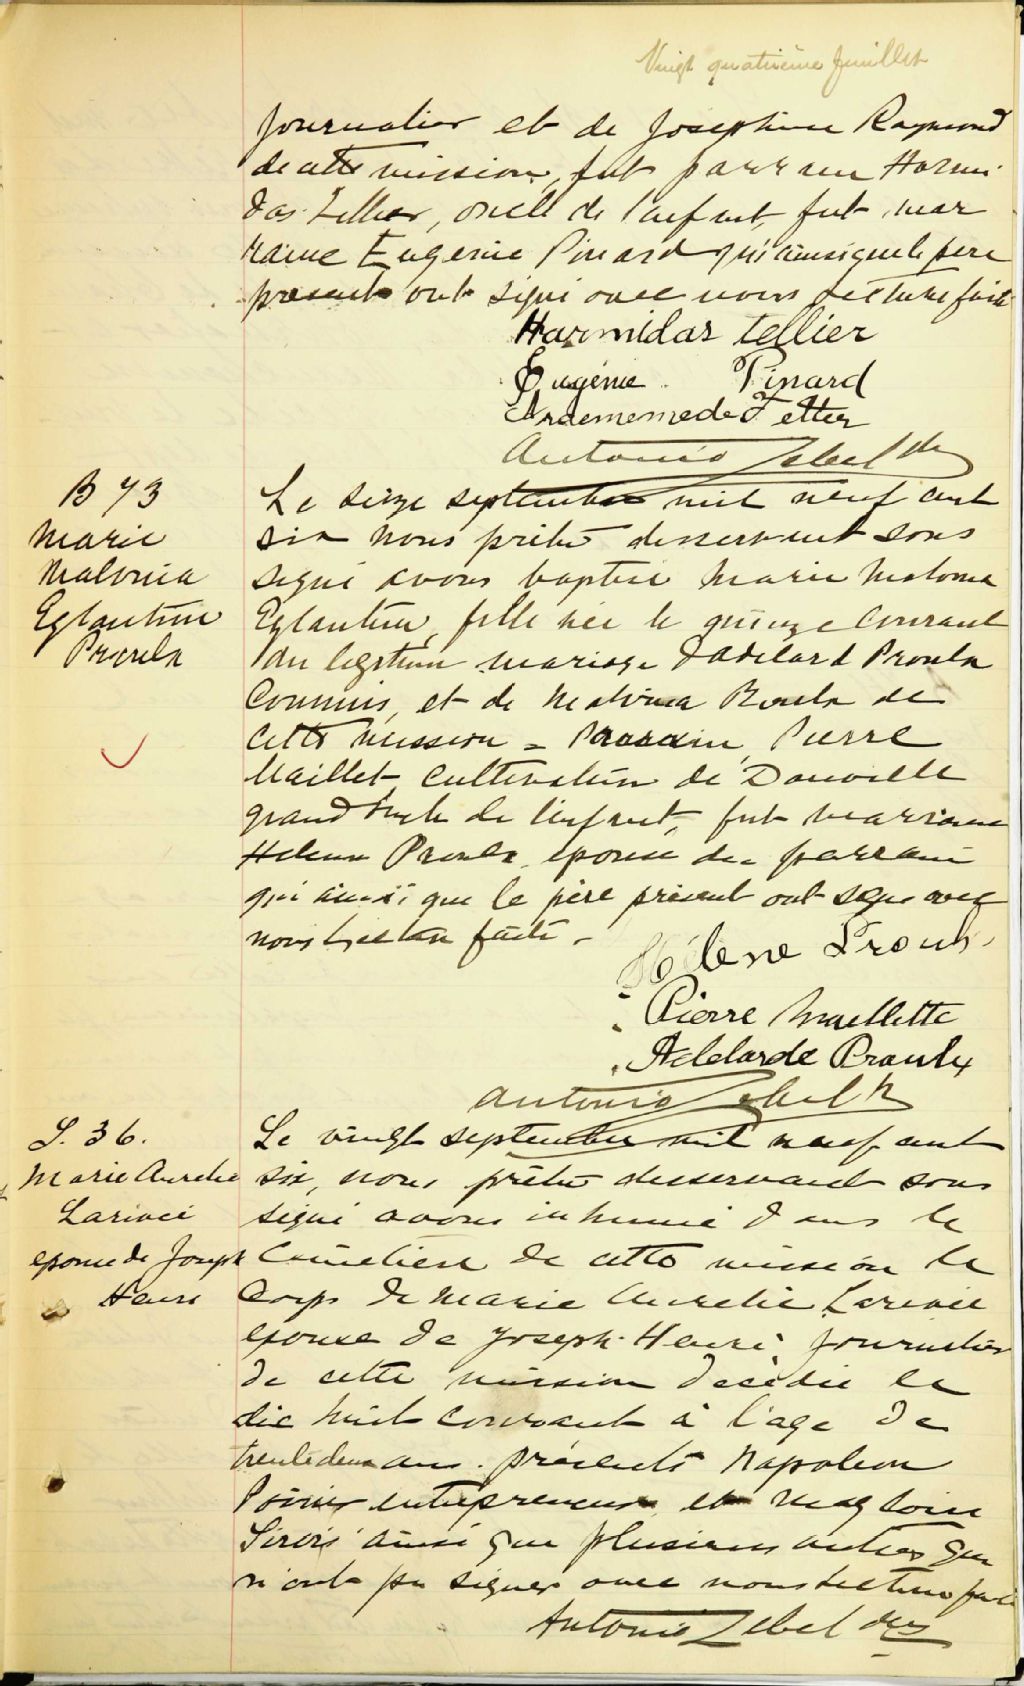 Vingt quatrième feuillet
journalier et de Josephine Raymond
de cette mission, fut parrain Harmi
das Tellier, oncle de l'enfant, fut mar
raine Eugenie Pinard qui ainsi que le père
present ont signé avec nous lecture faite
Harmidas tellier
Eugénie Pinard
Tellier
Antonio Lebel
B 73
Marie
Malvina
Eglantine
Proulx
Le seize septembre mil neuf cent
six nous prêtre desservant sous
signé avons baptisé Marie Malvina
Eglantine, fille née le quinze courant
du legitime mariage d'Adelard Proulx
Commis, et de Malvina de
cette mission = Parrain, Pierre
Maillet, cultivateur de
grand oncle de l'enfant, fut marraine
Helene Proulx, epouse du parrain
qui ainsi que le père présent ont signé avec
nous lecture faite.
Hélène Proulx
Pierre Maillette
Adelarde Proulx
Antonio Lebel
S. 36.
Marie Aurelie
Larivée
epouse de Joseph
Henri
Le vingt septembre mil neuf cent
six, nous prêtre desservant sous
signé avons inhumé dans le
Cimetière de cette mission le
corps de Marie Aurelie Larivée
epouse de Joseph Henri, journalier
de cette mission décédée le
dix huit courant à l'age de
trente deux ans. présents Napoleon
Poirier entrepreneur et Magloire
Sirois ainsi que plusieurs autres qui
n'ont pu signer avec nous lecture faite
Antonio Lebel